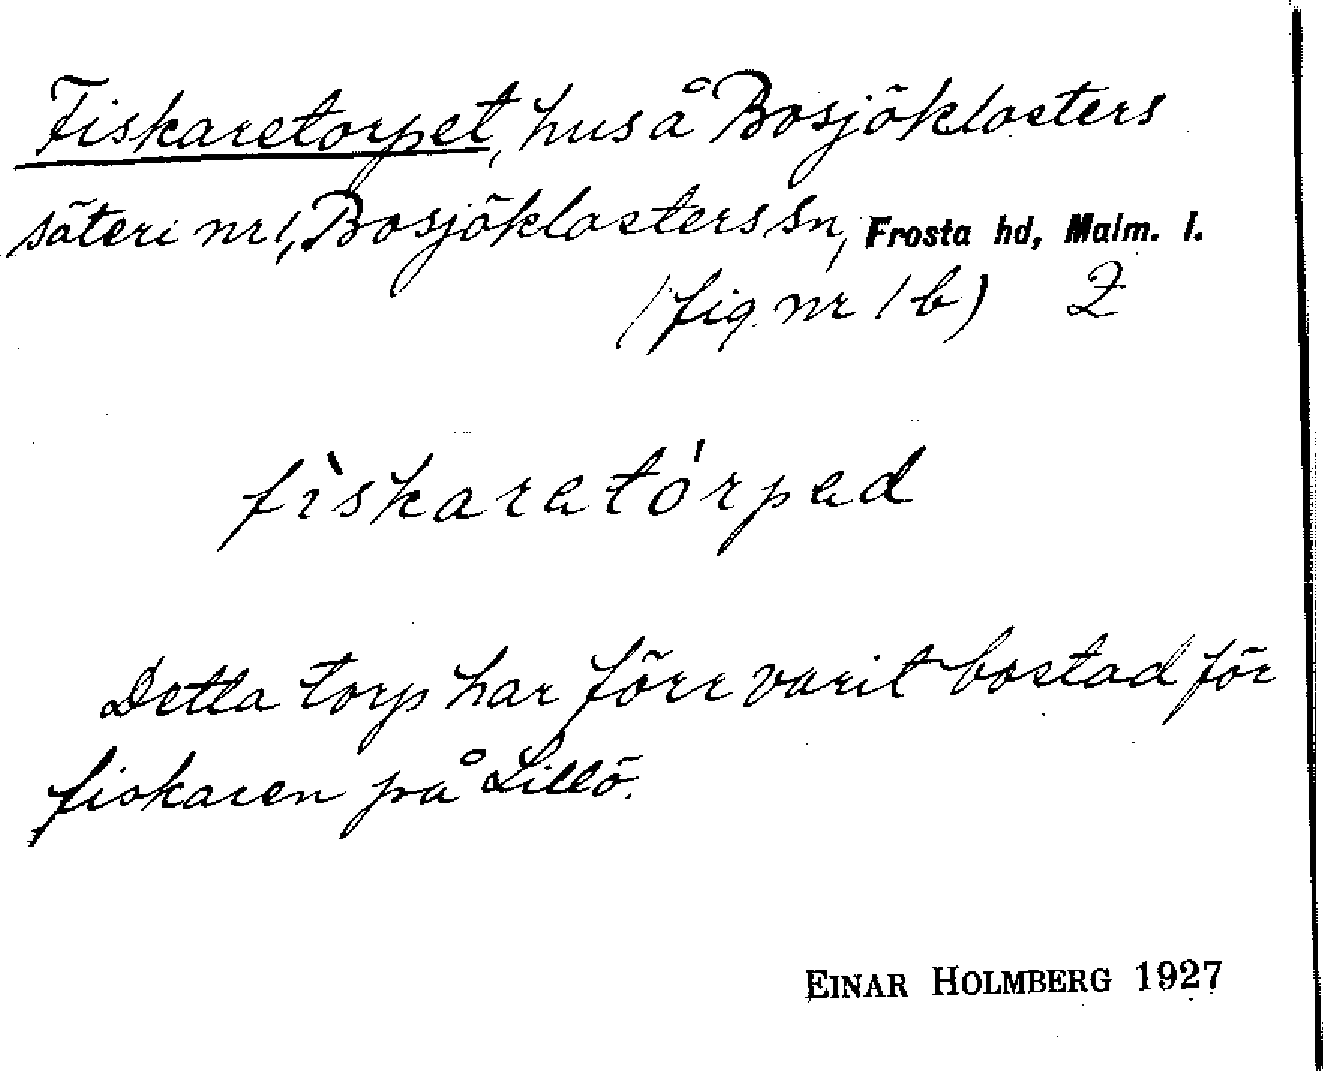 Fiskaretorpet, hus å Bosjöklosters
säteri nr 1, Bosjöklosters sn, Frosta hd, Malm. l.
(fig. nr 1 b) Z
fìskaretórpad
Detta torp har förr varit bostad för
fiskaren på Lillö.
EINAR HOLMBERG 1927